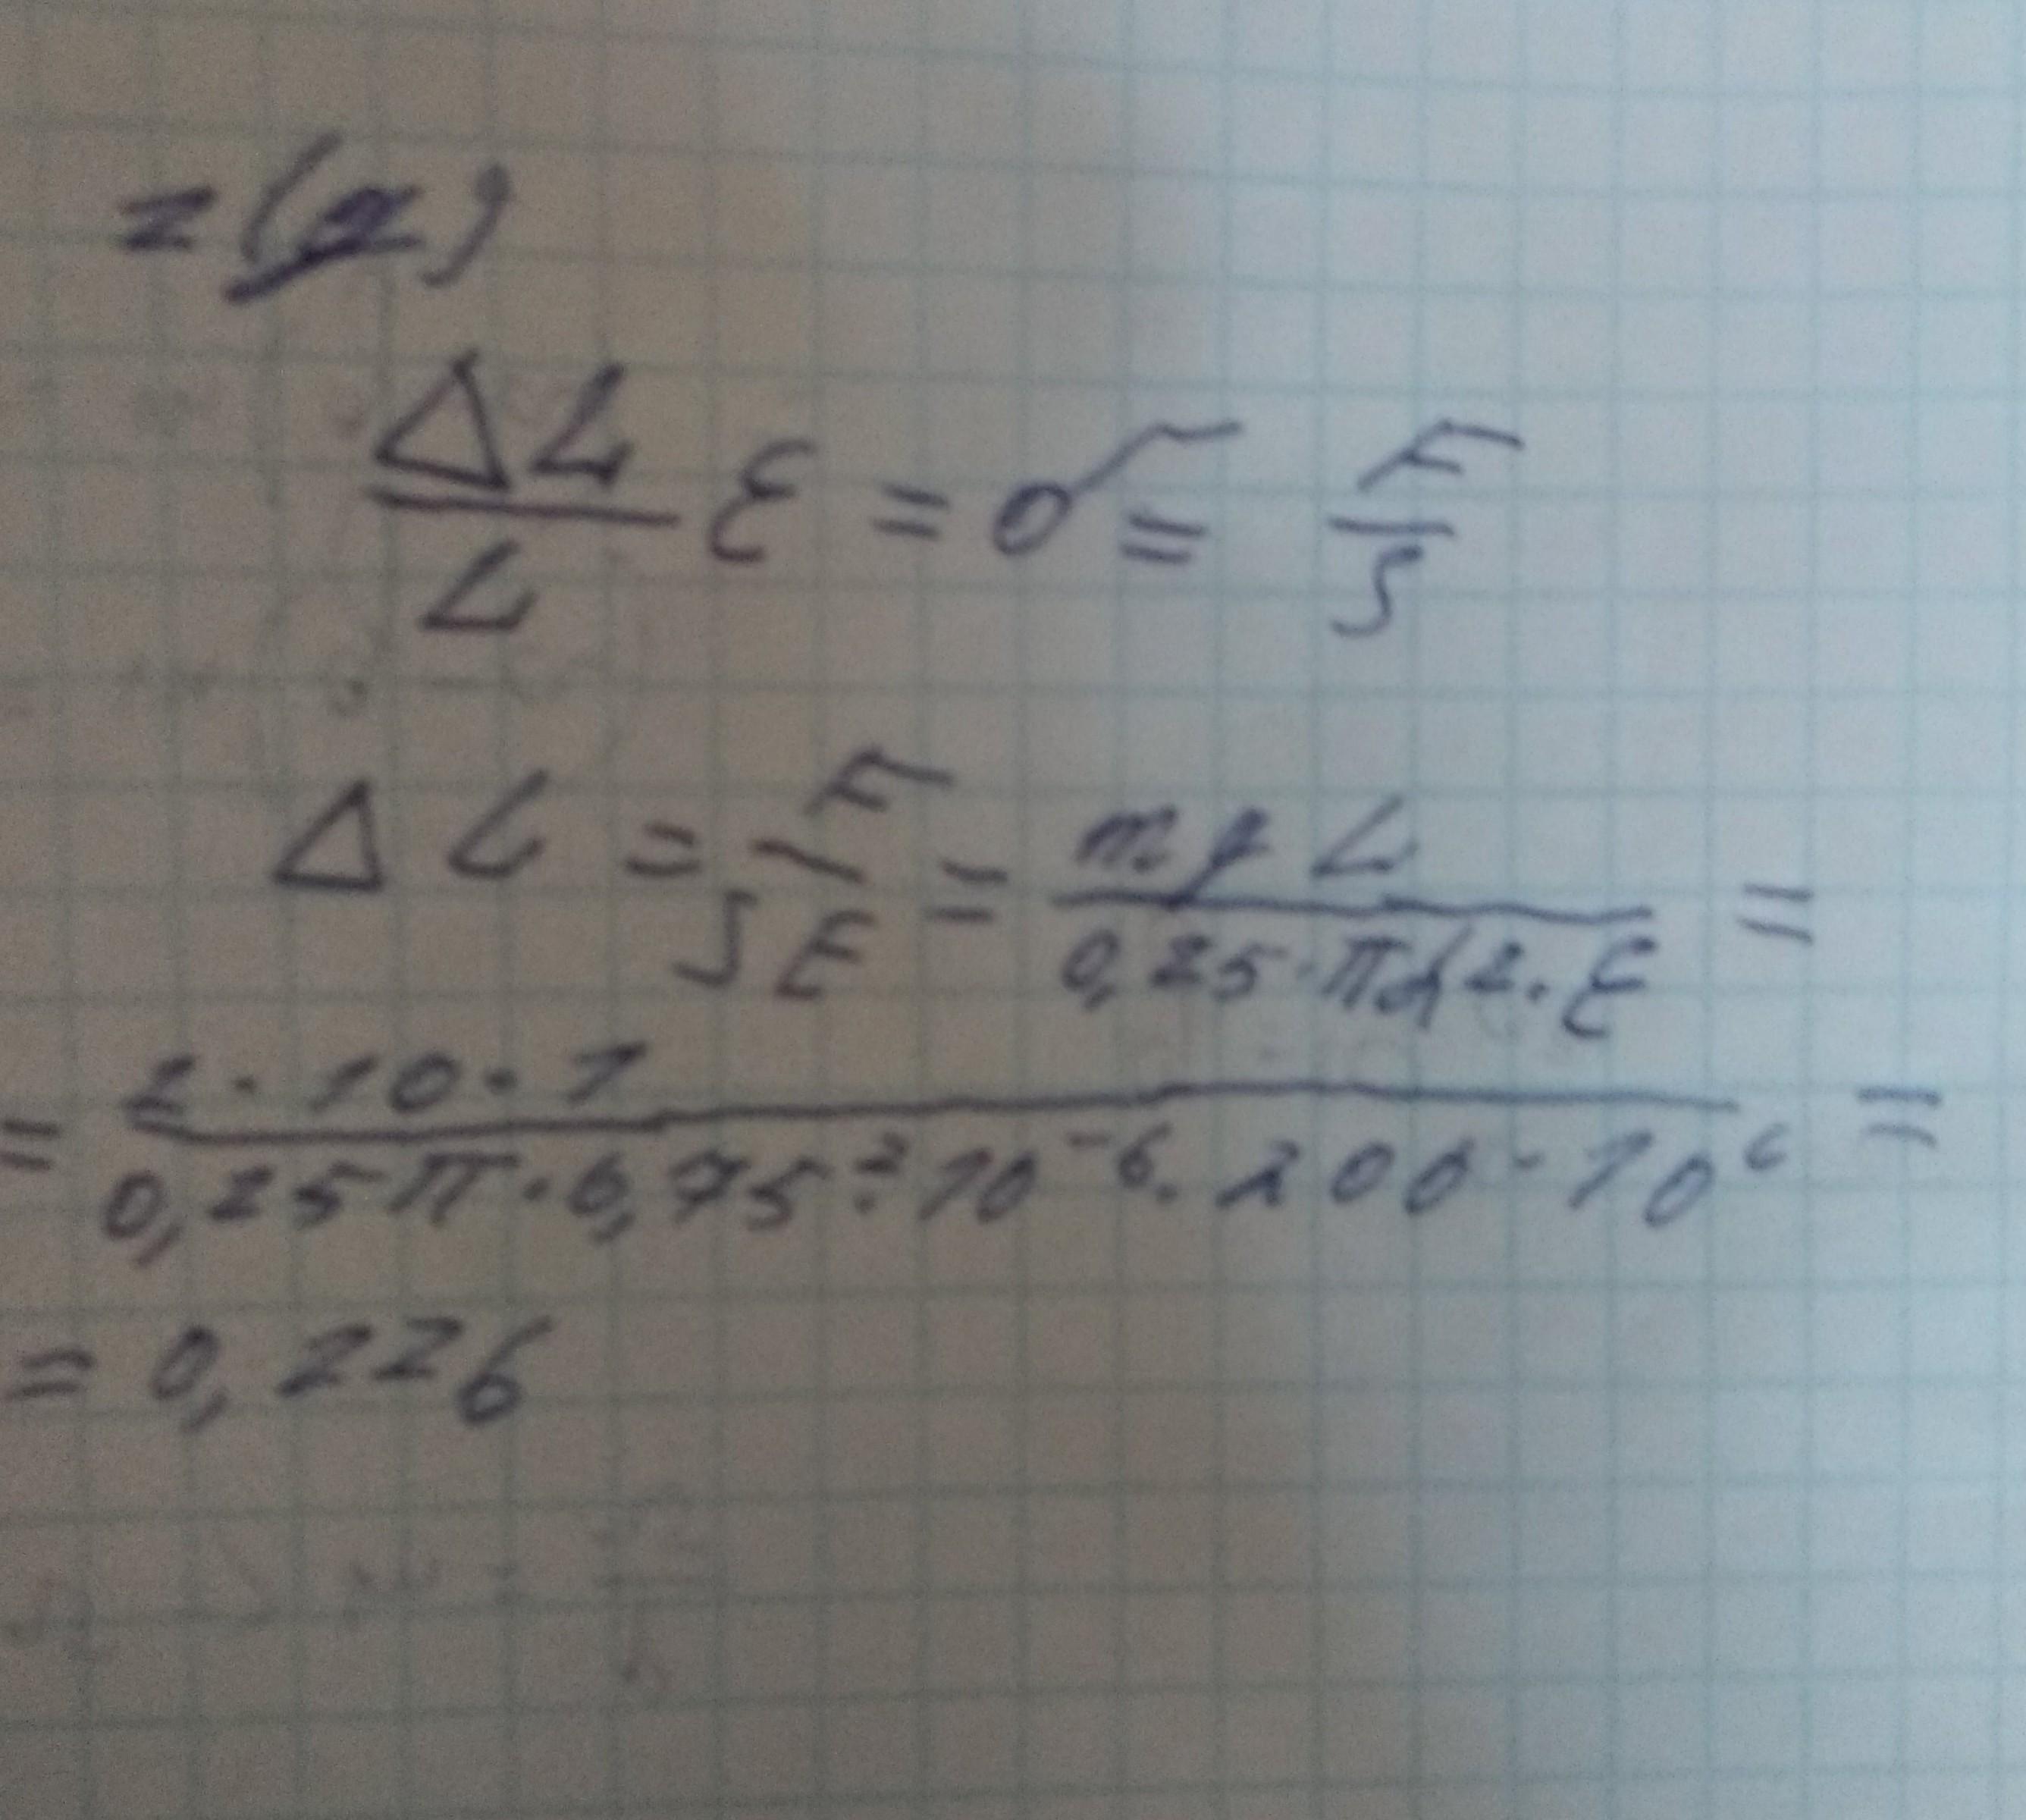 =(g)
ΔL/L ε = σ = F/S
ΔL = F/SE = mgL/0,25·πd²·ε =
= 2·10·1/0,25π·0,75²·10⁻⁶·200·10⁶ =
= 0,226